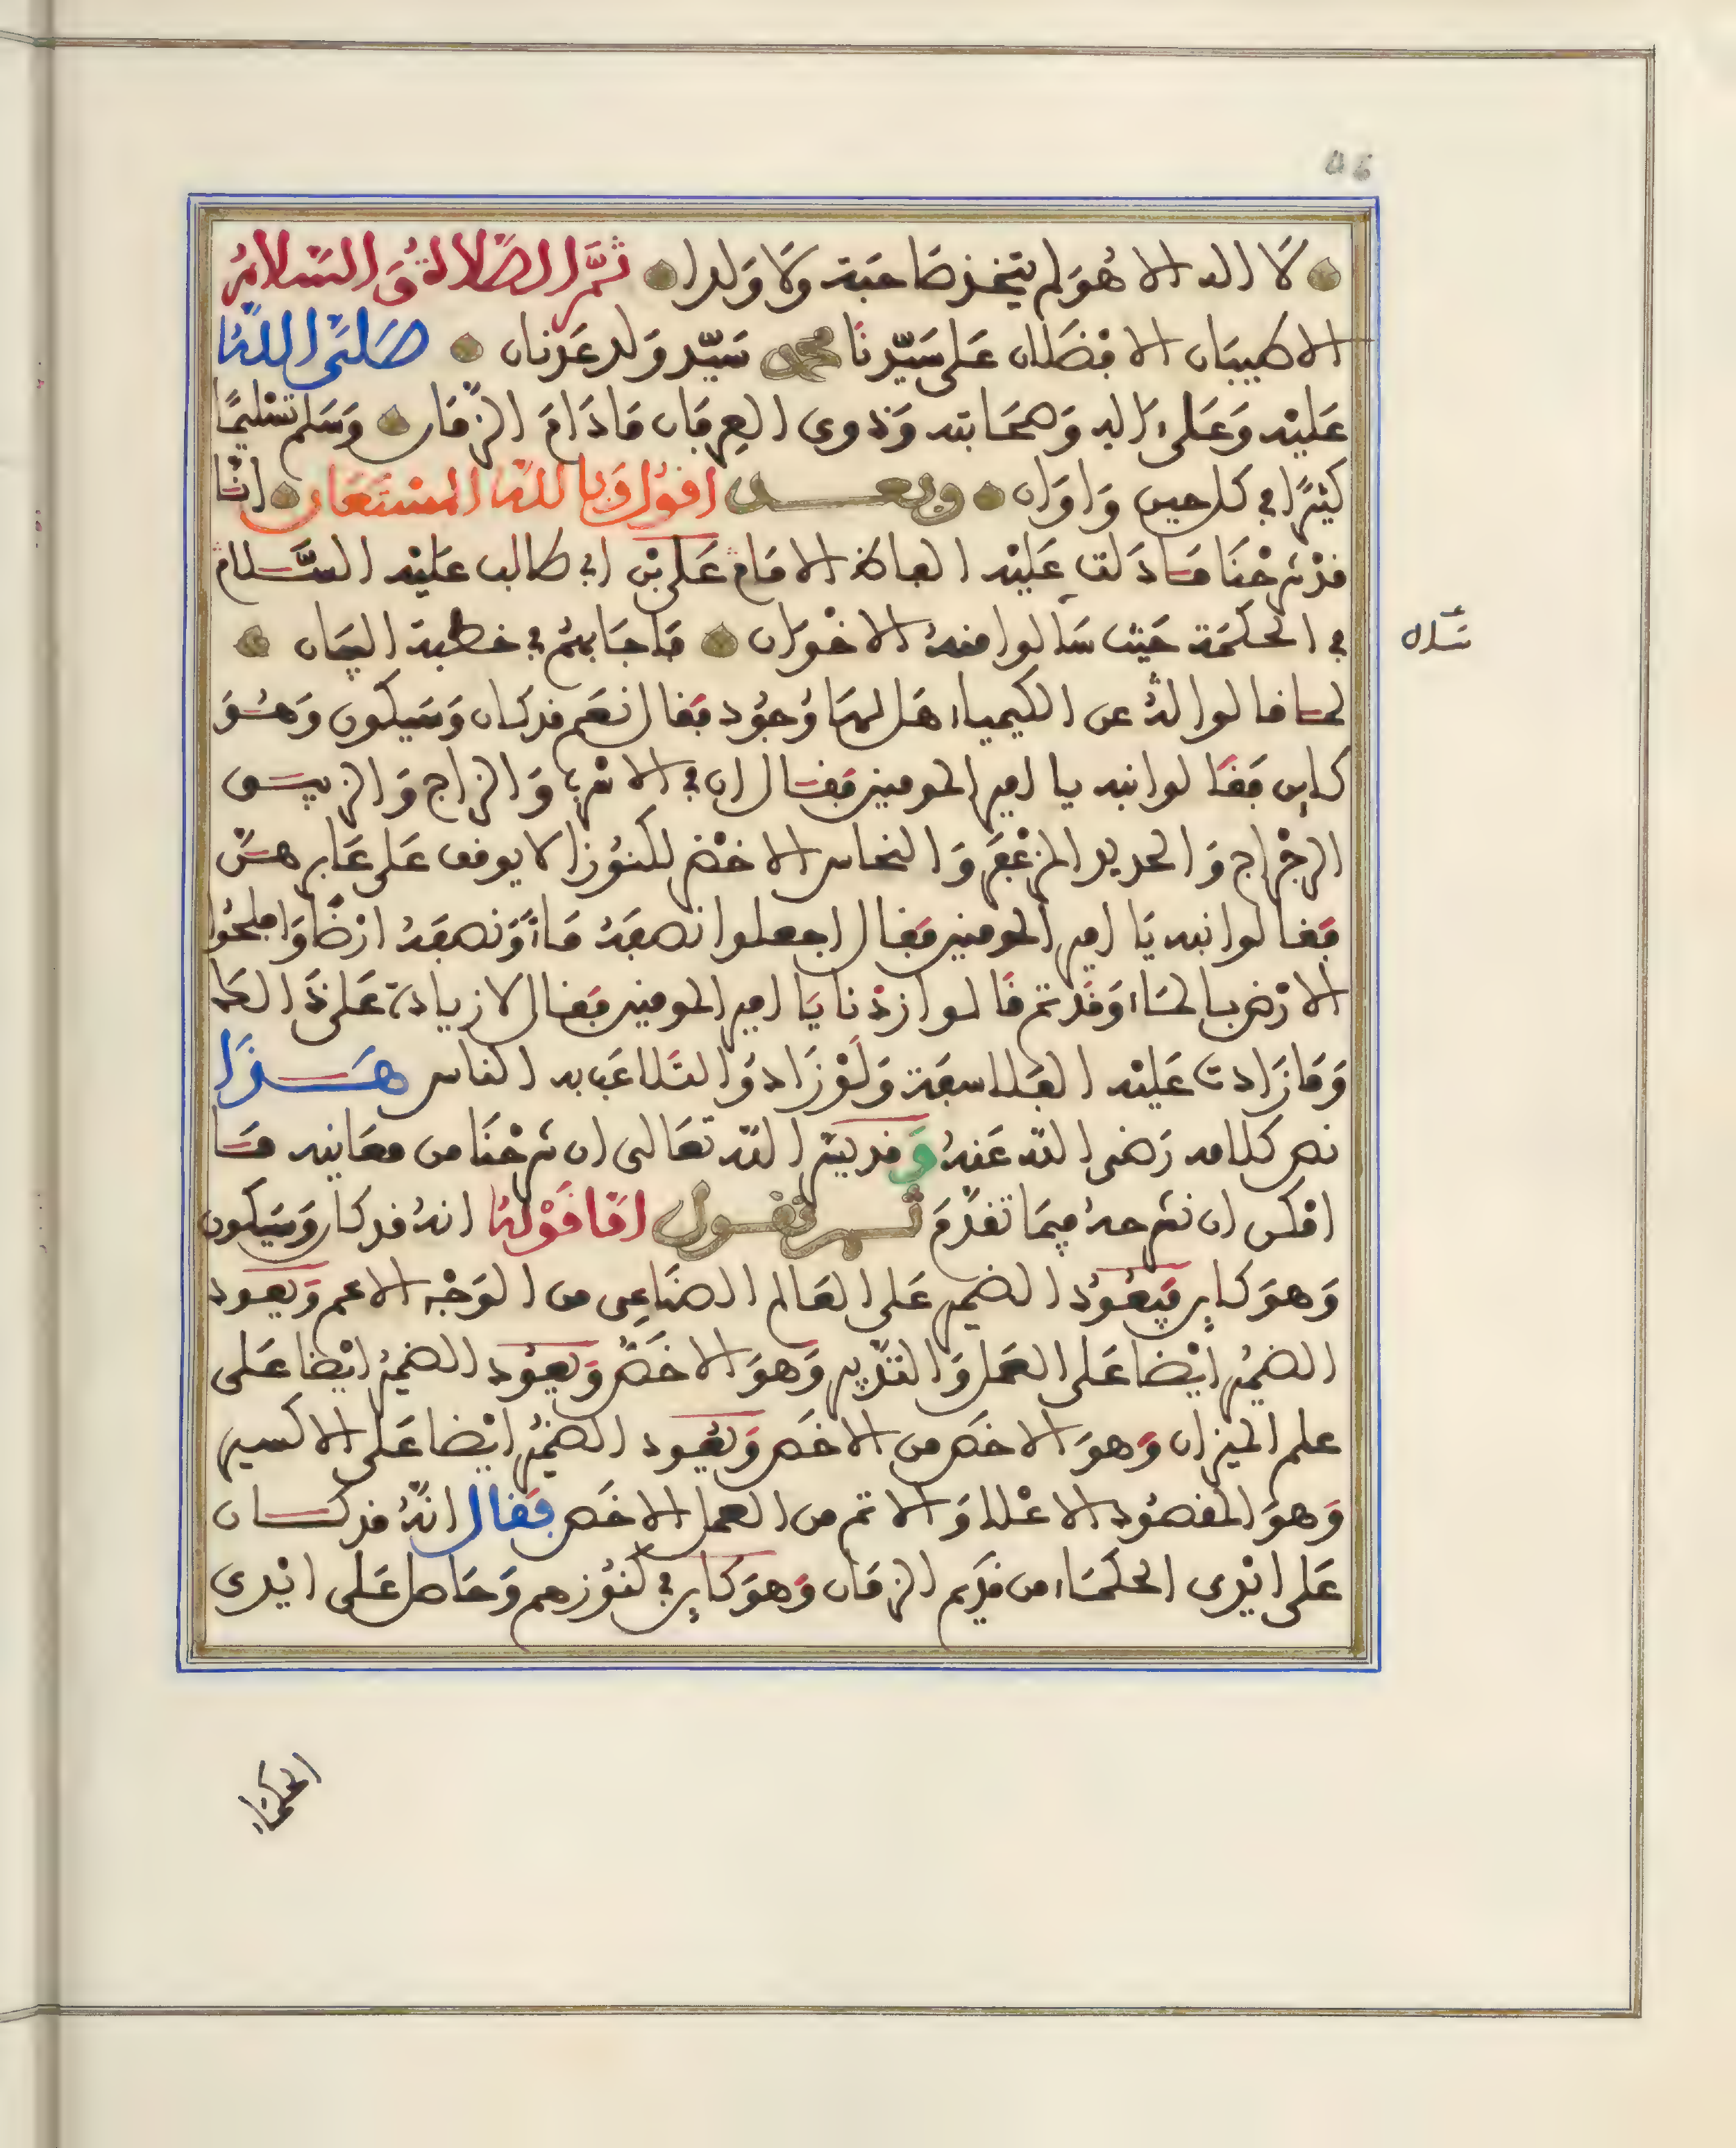 لَا اله الا هُوَ لم يتخذ صَاحبَة وَلَا وَلدا ثمَّ الصَّلاة وَالسَّلامُ
الاطيبَان الافضَلان عَلى سَيّدنَا محمد سَيّد وَلد عَدنان صَلى اللهُ
عَليْه وَعَلى ءَاله وَصحَابته وَذوى العِرفَان مَا دَامَ الزّمَان وَسَلم تسْليمًا
كثيرًا في كل حين وَاوَان وبعــد اقول وَبالله المسْتعَان انّا
قدْ شرحْنَا مَا دَلت عَليْه الفاظ الامَام عَلي بْن ابي طالب عليْه السَّلام
في الحكمَة حَيْث سَالوا منهُ الاخْوَان فاجَابهُم في خطبة البيَان
لما قالوا لهُ عن الكيمياء هَل لهَا وُجُود فقَال نعَم قد كَان وَسَيكون وَهُوَ
كاين فقَالوا نبه يا امير المومنين فقال ان في الاسْرب وَالزاج وَالزيبق
الرجْراج وَالحديد المزعْفر وَالنحاس الاخضر لكنُوزا لا يوقف عَلى غَابرهنّ
فقَالوا نبه يَا امير المومنين فقال اجعلوا نصفهُ مَاءً وَنصفهُ ارْضًا وَافلحُوا
الارْض بالمَاء وَقد تم قَالوا زدْنا يَا امير المومنين فقال لا زيادة عَلى ذَا لكما
وَمَا زَادت عَليْه الفلاسفة وَلَوْ زَادوُا لتلاعَب به الناس هَـذَا
نص كلامه رَضى الله عَنهُ وَقد يسّر الله تعَالى ان شرحْنَا من معَانيه مَا
امْكن ان نشرحهُ فيمَا تقدّمَ ثـم نقـول امَّا قَوْلهُ انهُ قد كان وَسَيكون
وَهوَ كاين فيَعُودُ الضمير عَلى العَالم الصنَاعِى من الوَجْه الاعم وَيعود
الضميُر ايْضا عَلى العَمل وَالتدْبير وَهوَ الاخَصّ وَيعُود الضميُر ايْضا عَلى
علم الميزان وَهوَ الاخَص من الاخَص وَيعُود الضميُر ايْضا عَلى الاكسير
وَهوَ المقصُود الاعْلا وَالاتم من العمل الاخَص فقَال انّهُ قد كَـان
عَلى ايْدى الحكمَاء من قديَم الزمَان وَهوَ كاين في كنوُزهم وَحَاصل عَلى ايْدى
الحكمَاء